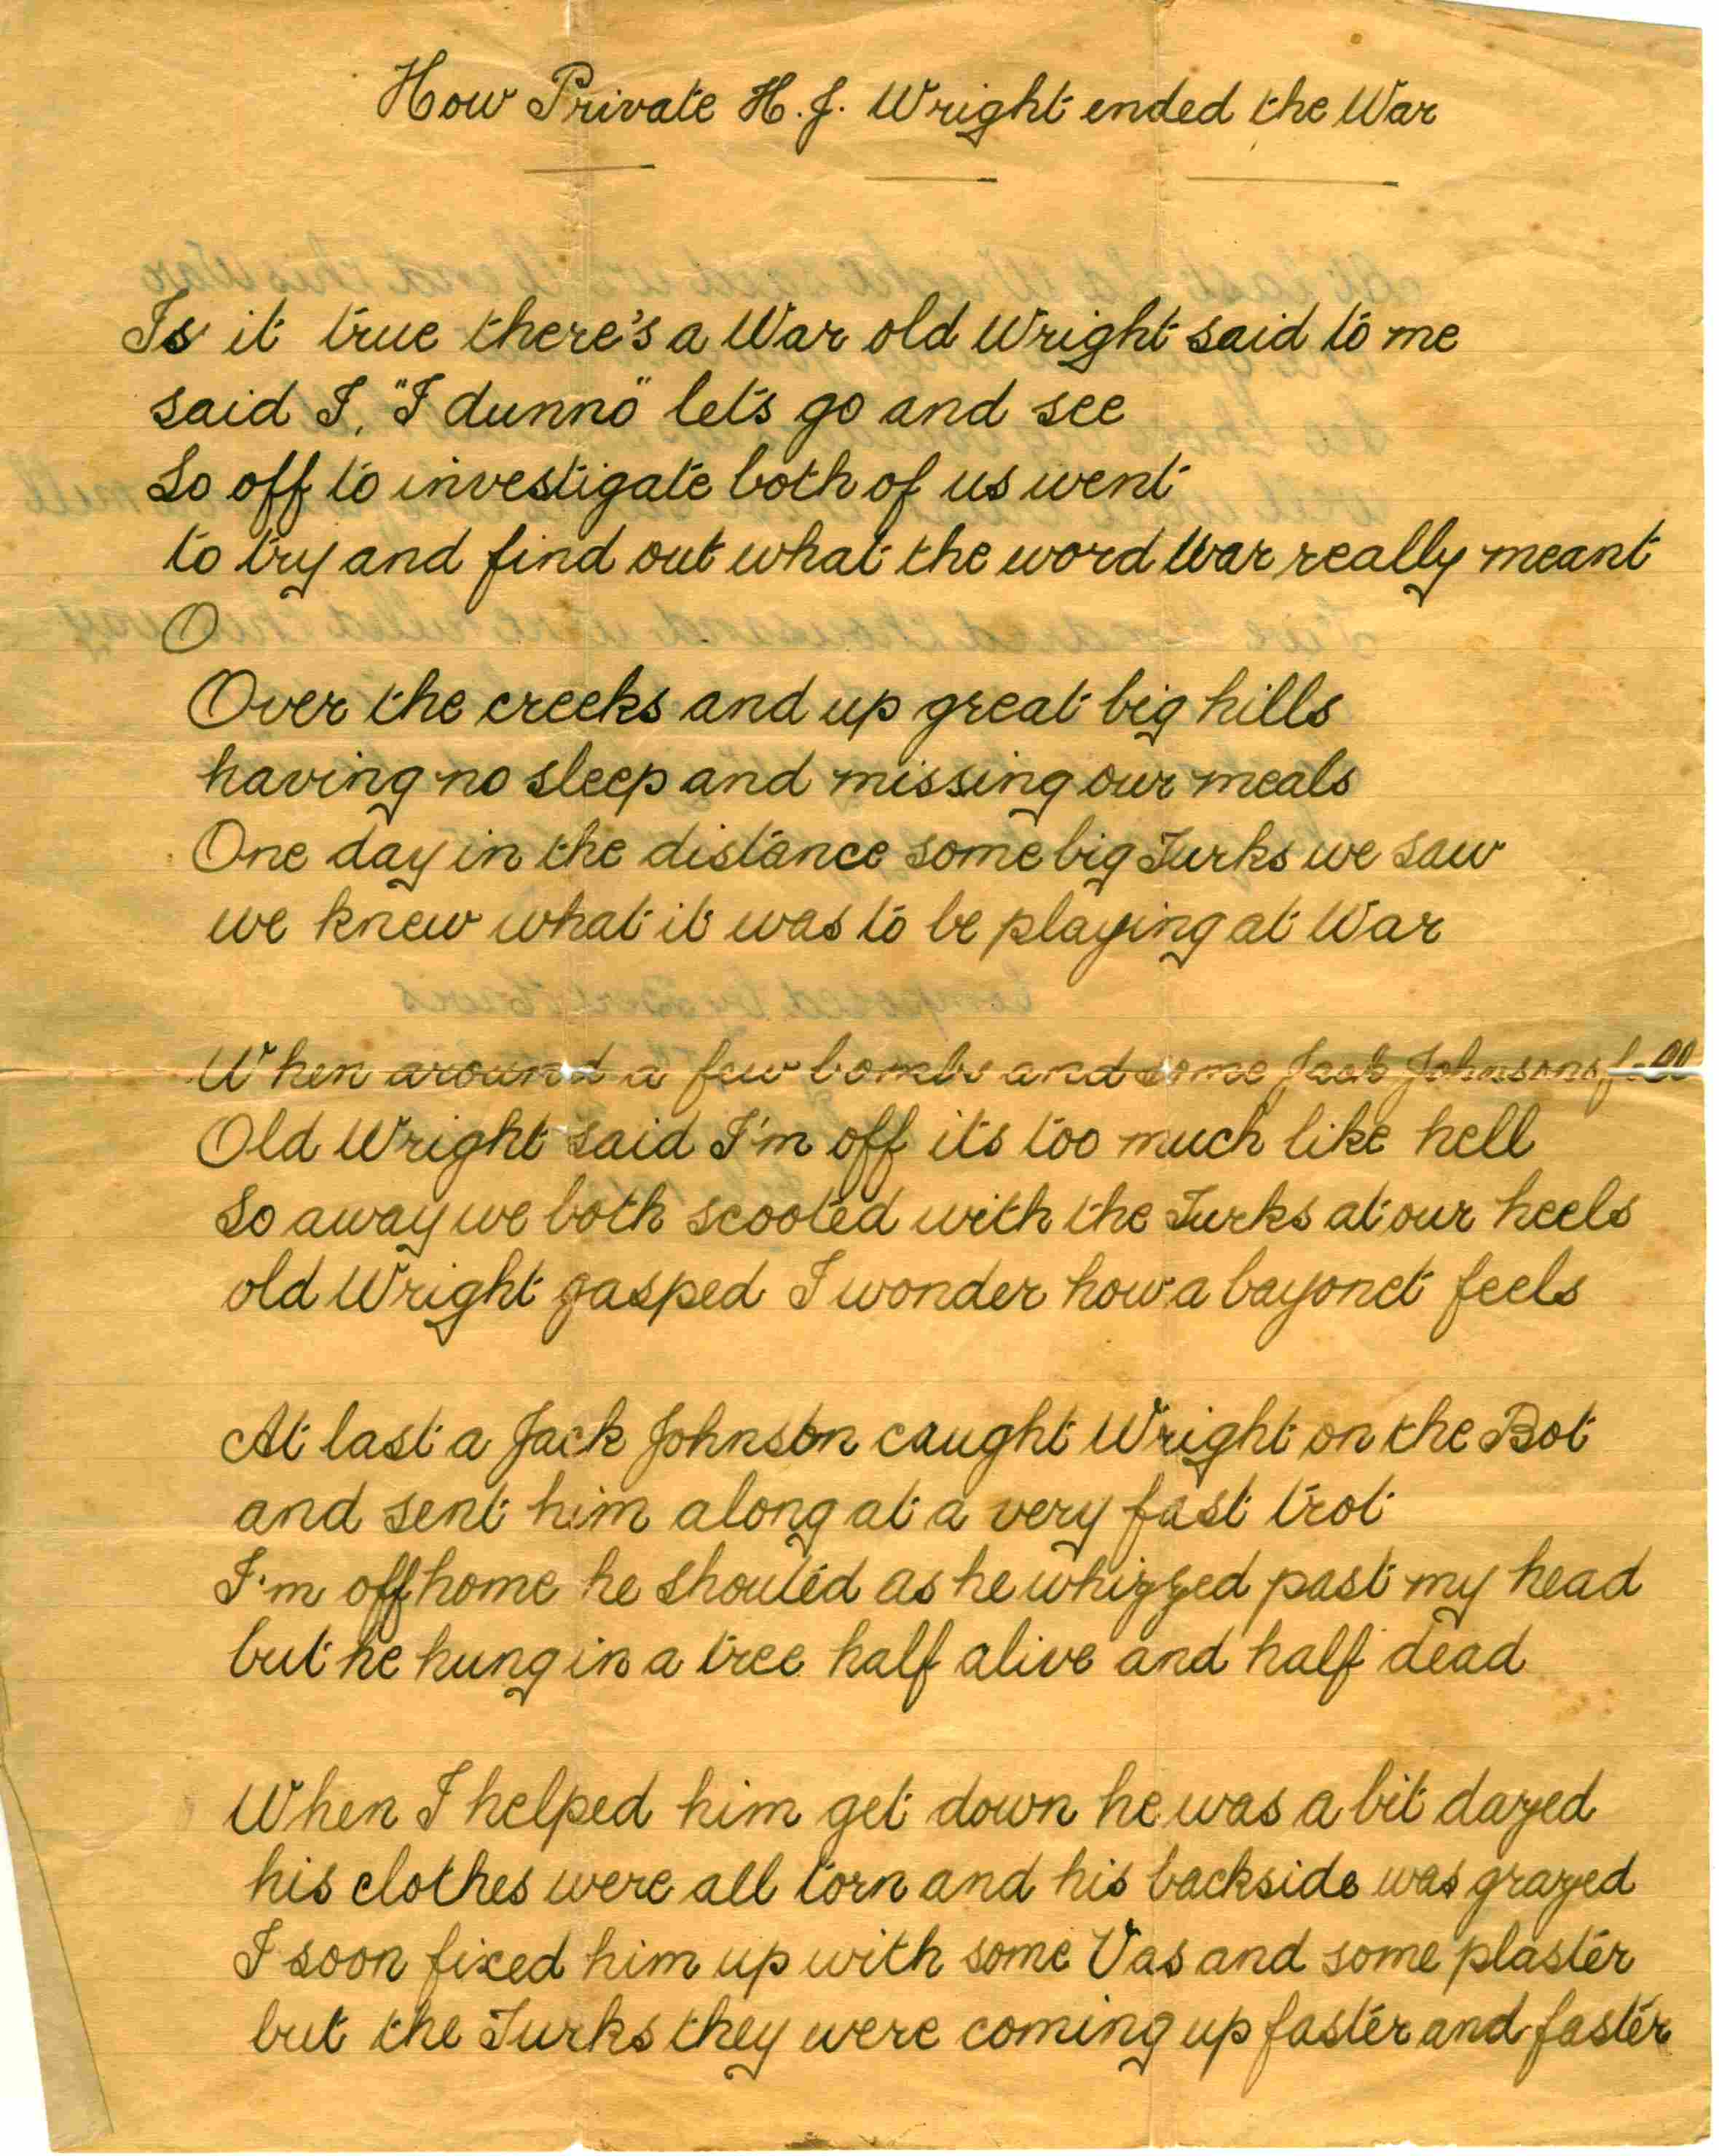 How Private H. J. Wright ended the War
Is it true there's a War old Wright said to me
said I, "I dunno" let's go and see
So off to investigate both of us went
to try and find out what the word War really meant
O
Over the creeks and up great big hills
having no sleep and missing our meals
One day in the distance some big Turks we saw
we knew what it was to be playing at War
When around a few bombs and some Jack Johnsons fell
Old Wright said I'm off its too much like hell
So away we both scooted with the Turks at our heels
old Wright gasped I wonder how a bayonet feels
At last a Jack Johnson caught Wright on the Bot
and sent him along at a very fast trot
I'm off home he shouted as he whizzed past my head
but he hung in a tree half alive and half dead
When I helped him get down he was a bit dazed
his clothes were all torn and his backside was grazed
I soon fixed him up with some Vas and some plaster
but the Turks they were coming up faster and faster